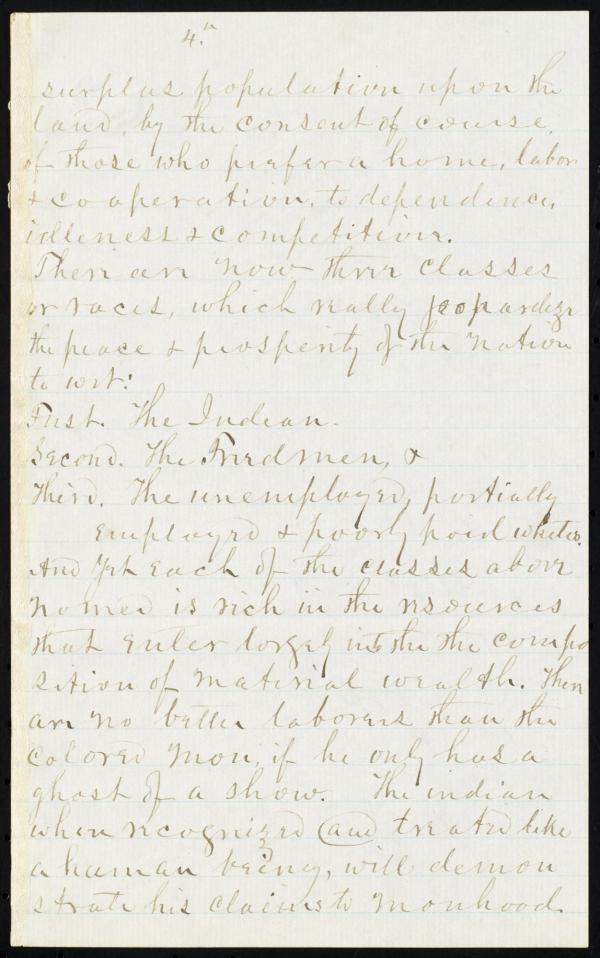 4.th
surplus population upon the
land, by the consent of course,
of those who prefer a home, labor
& cooperation, to dependence,
idleness & competition.
There are now three classes
or races, which really jeopardize
the peace & prosperity of the Nation
to wit:
First. The Indian.
Second. The Freedmen, &
Third. The unemployed, partially
employed & poorly paid whites.
And yet each of the classes above
named is rich in the resources
that enter largely into the the compo
sition of material wealth. There
are no better laborers than the
colored man, if he only has a
ghost of a show. The indian
when recognized and treated like
a human being, will demon
strate his claims to manhood.